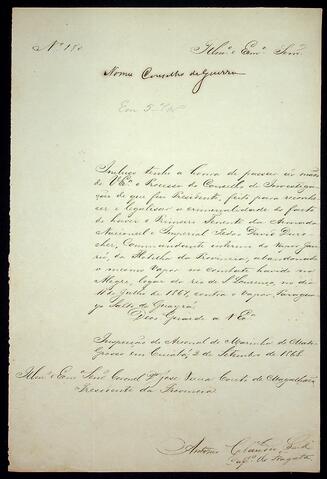 Nº 180
Illmº e Exmº Senr.
Nomea Conselho de Guerra
Em 5
Incluso tenho a honra de passar as mãos
de V Exª o Processo do Conselho de Investiga-
ção de que fui Presidente, feito para reconhe-
cer e legalisar a criminalidade do facto
de haver o Primeiro Tenente da Armada
Nacional e Imperial Jose Diniz Duro
cher, Commandante interino do Vapor Jau-
rú, da Flotilha da Provincia, abandonado
o mesmo Vapor no combate havido no
Alegre, lugar do rio de S. Lourenço, no dia
11 de Julho de 1867, contra o Vapor Paraguay-
o Salto de Guayra.
Deos Guarde a V Exª
Inspecção do Arsenal de Marinha de Mato
Grosso em Cuiabá, 2 de Setembro de 1868.
Illmº e Exmº Senr. Coronel Dr. José Vieira Couto de Magalhães
Presidente da Provincia
Antonio Claudio
Capm. de Fragata